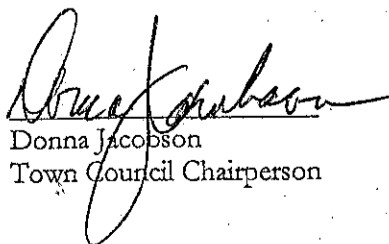 Donna Jacobson
Donna Jacobson
Town Council Chairperson